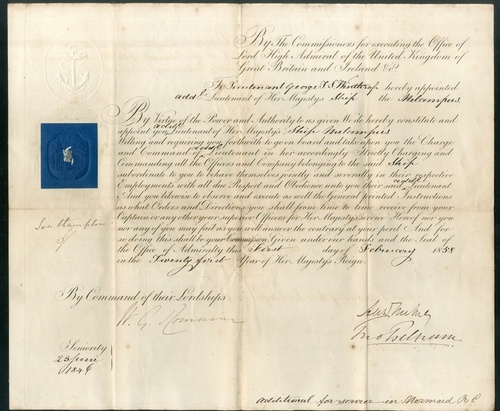 By The Commissioners for executing the Office of
Lord High Admiral of the United Kingdom of
Great Britain and Ireland &c
To Lieutenant George hereby appointed
addl Lieutenant of Her Majestys Ship the Melampus
By Virtue of the Power and Authority to us given We do hereby constitute and
appoint you addl Lieutenant of Her Majesty's Ship Melampus
Willing and requiring you forthwith to go on board and take upon you the Charge
and Command of addl Lieutenant in her accordingly Strictly Charging and
Commanding all the Officers and Company belonging to the said Ship
subordinate to you to behave themselves jointly and severally in their respective
Employments with all due Respect and Obedience unto you their said addl Lieutenant
And you likewise to observe and execute as well the General printed Instructions
as what Orders and Directions you shall from time to time receive from your
Captain or any other your superior Officers for Her Majesty's service Hereof nor you
nor any of you may fail as you will answer the contrary at your peril And for
so doing this shall be your Commission Given under our hands and the Seal of
the Office of Admiralty this First day of February 1858
in the Twenty first Year of Her Majestys Reign
By Command of their Lordships
Seniority
23 June
184
additional for service in Mermaid R C